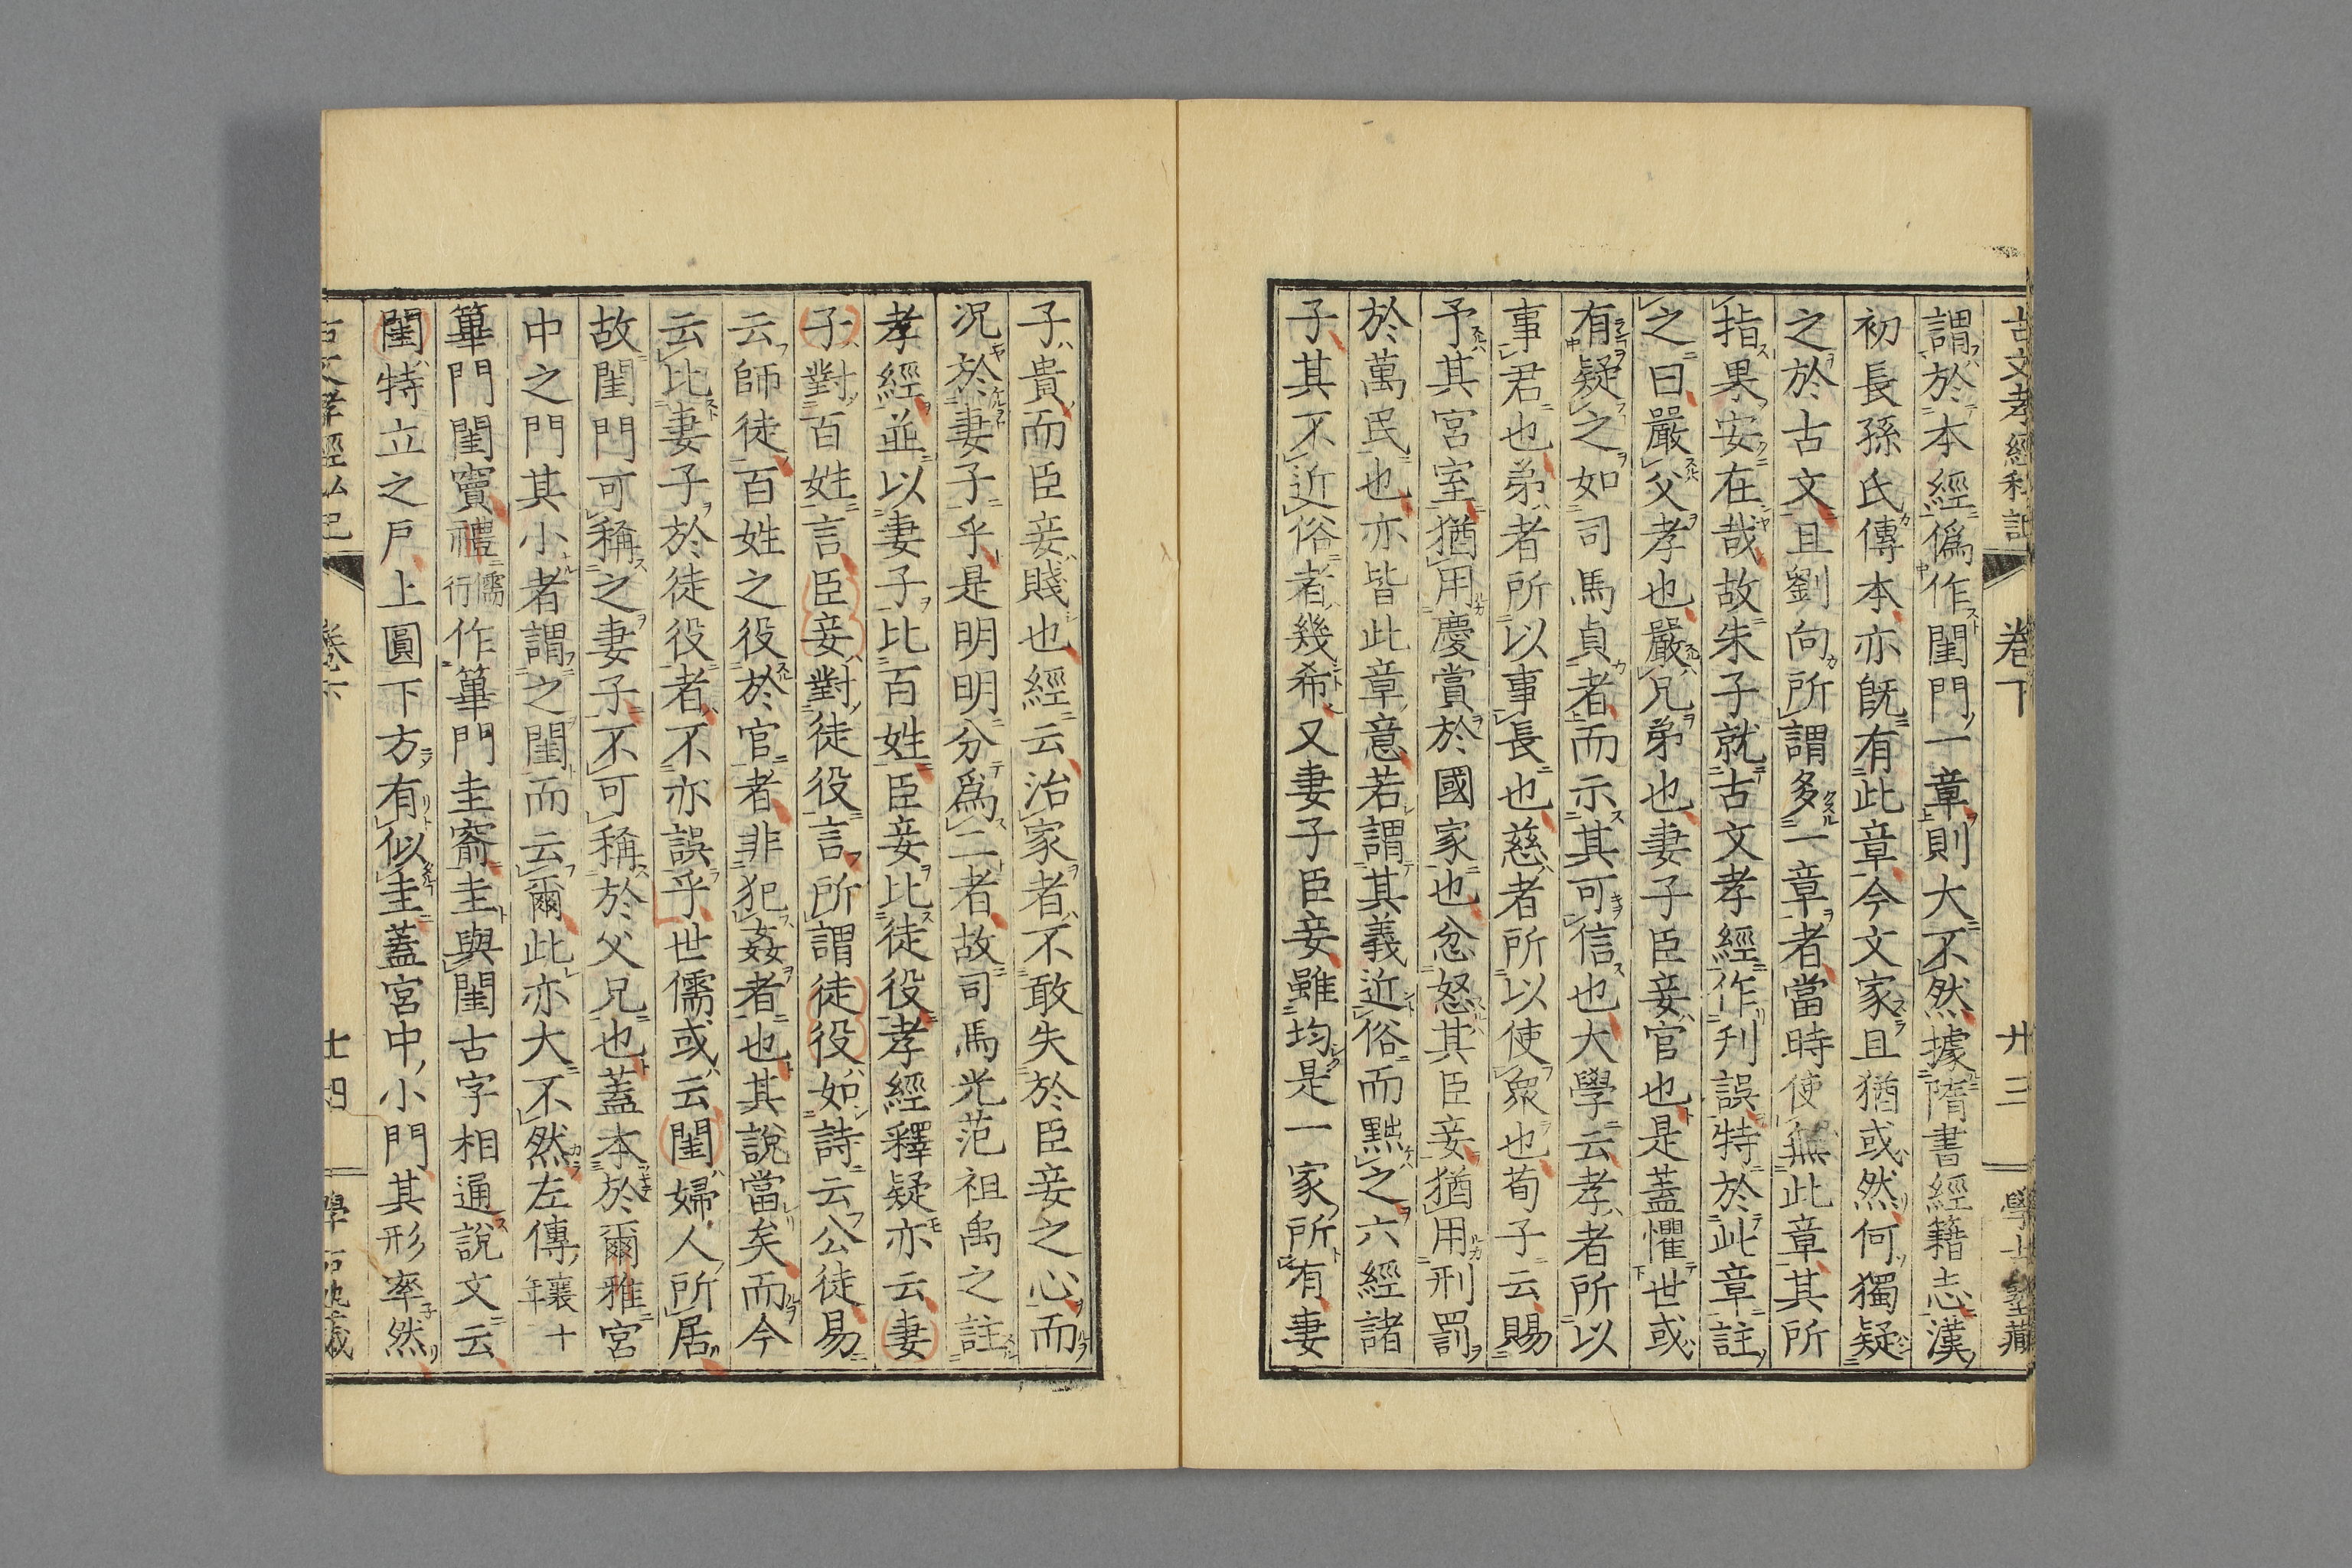 古文孝經私記 卷下 廿三
謂於本經僞作閨門一章則大不然據隋書經籍志漢
初長孫氏傳本亦既有此章今文家且猶或然何獨疑
之於古文且劉向所謂多一章者當時使無此章其所
指果安在哉故朱子就古文孝經作刋誤特於此章註
之曰嚴父孝也嚴兄弟也妻子臣妾官也是蓋懼世或
有疑之如司馬貞者而示其可信也大學云孝者所以
事君也弟者所以事長也慈者所以使衆也荀子云賜
予其宮室猶用慶賞於國家也忿怒其臣妾猶用刑罰
於萬民也亦皆此章意若謂其義近俗而黜之六經諸
子其不近俗者幾希又妻子臣妾雖均是一家所有妻
子貴而臣妾賤也經云治家者不敢失於臣妾之心而
況於妻子乎是明明分爲二者故司馬光范祖禹之註
孝經並以妻子比百姓臣妾比徒役孝經釋疑亦云妻
子對百姓言臣妾對徒役言所謂徒役如詩云公徒易
云師徒百姓之役於官者非犯姦者也其說當矣而今
云比妻子於徒役者不亦誤乎世儒或云閨婦人所居
故閨門可稱之妻子不可稱於父兄也蓋本於爾雅宮
中之門其小者謂之閨而云爾此亦大不然左傳襄十年
篳門閨竇禮儒行作篳門圭窬圭與閨古字相通說文云
閨特立之戶上圓下方有似圭蓋宮中小門其形率然